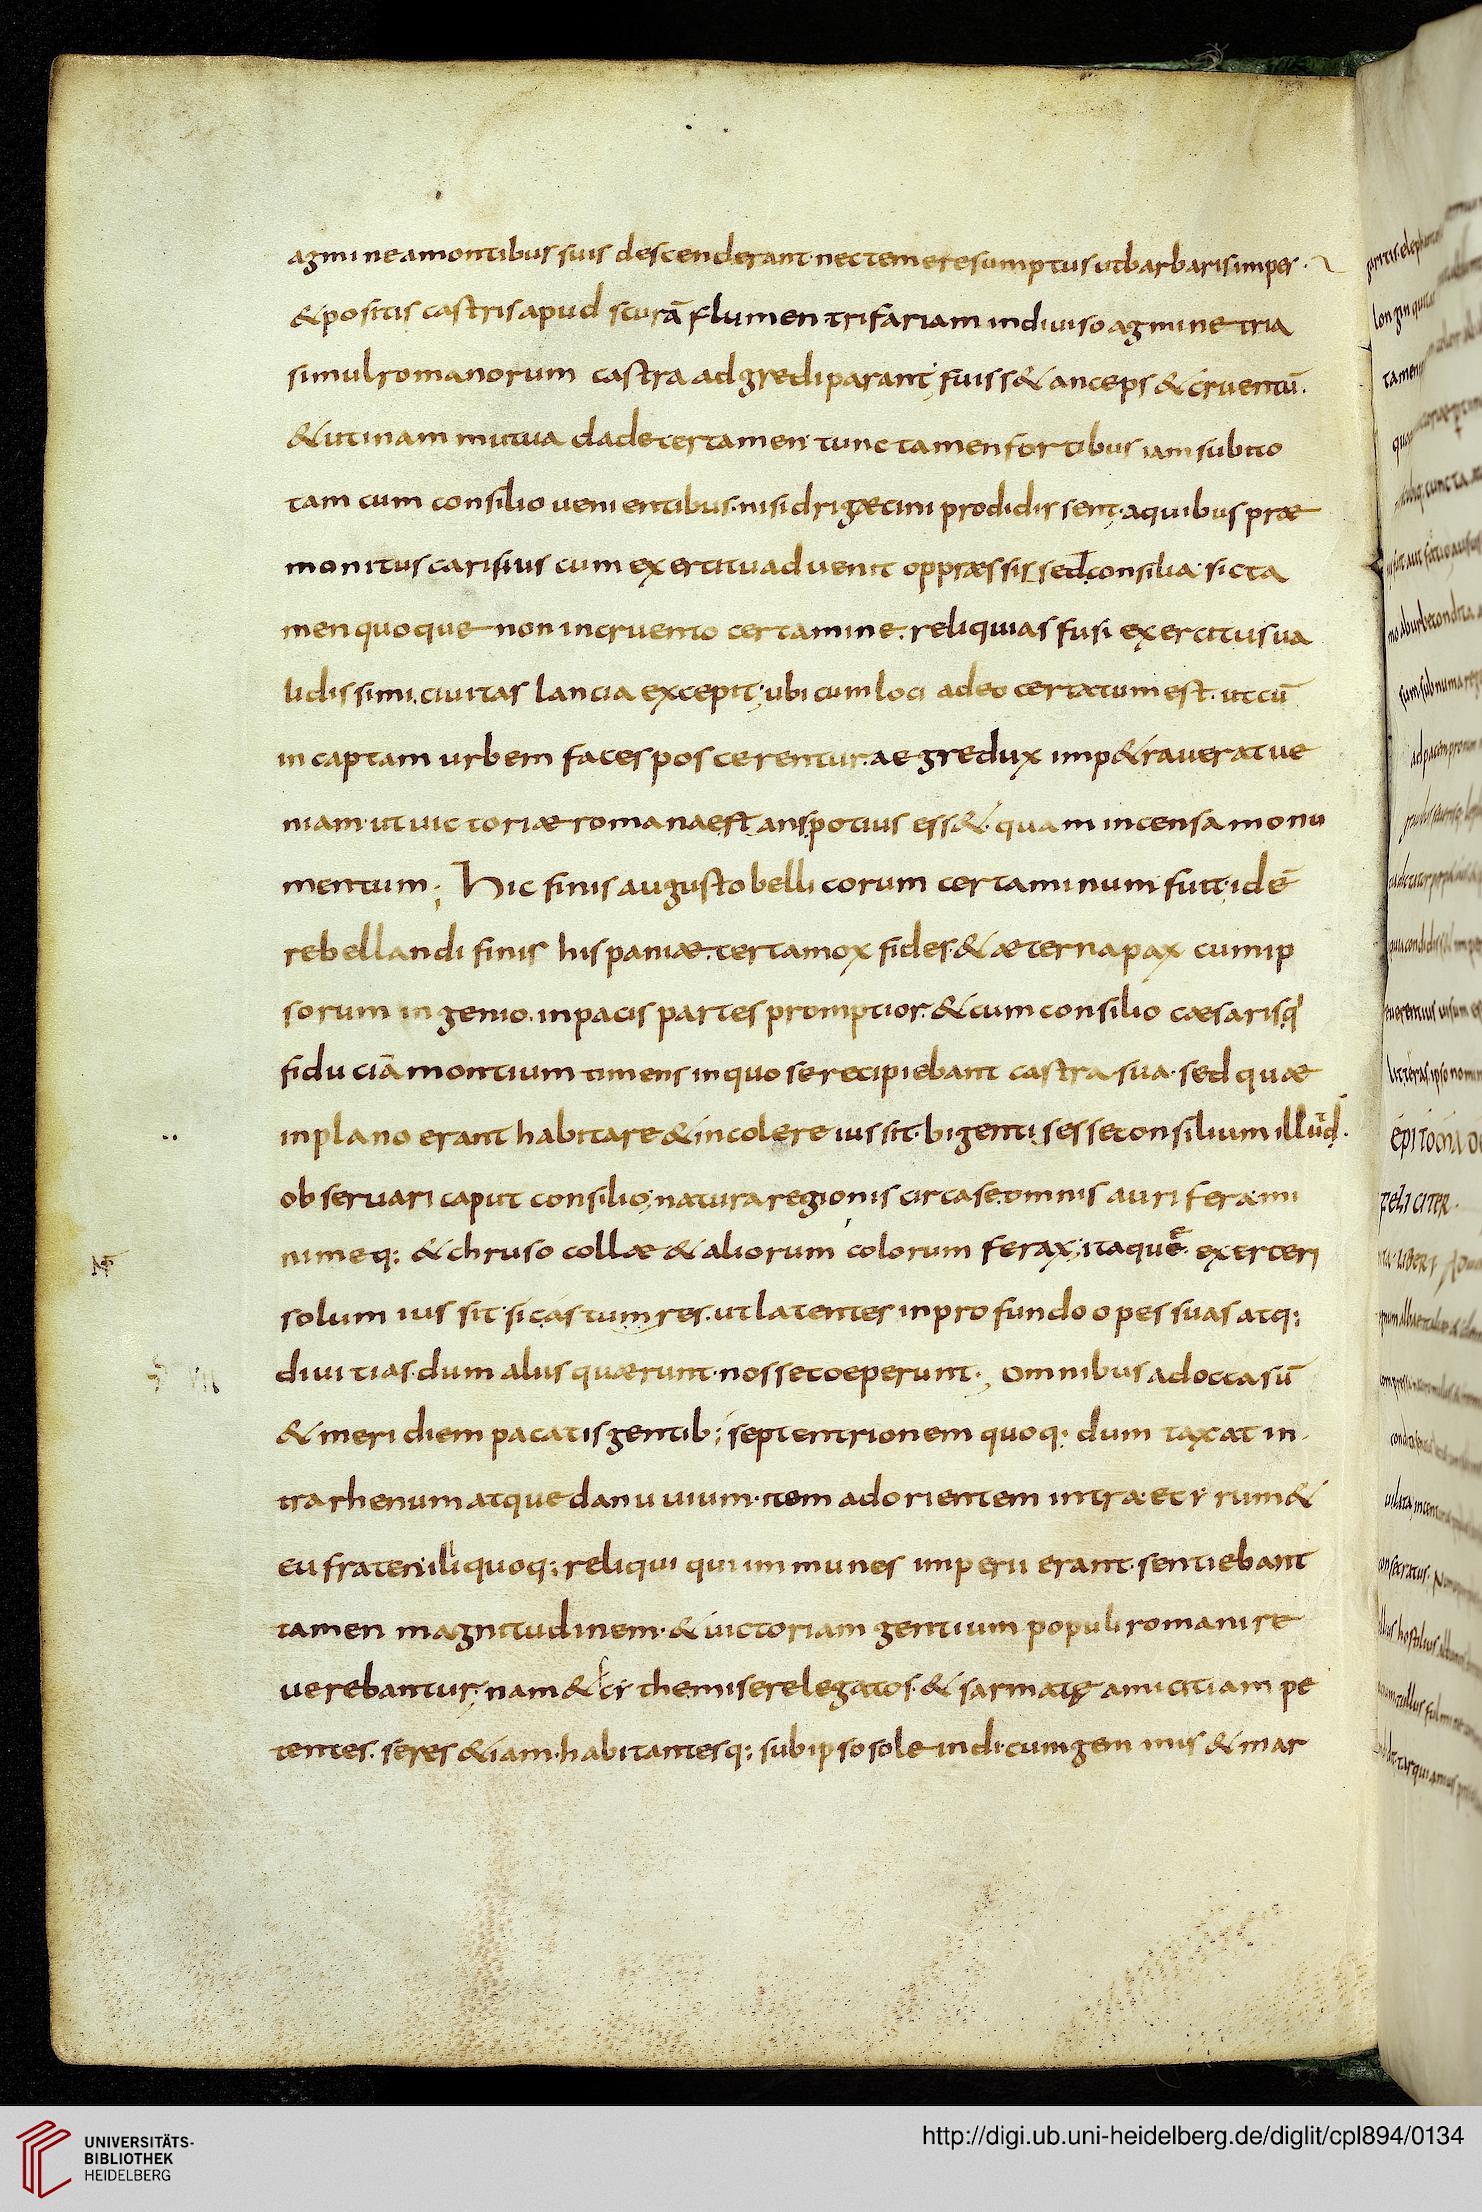 agmine amontibus suis descenderant· nec temere sumptus ut barbaris impe&s·
& positis castris apud sturā flumen trifariam indiuiso agmine tria
simul romanorum castra adgredi parant; fuiss& anceps & cruentū·
& utinam mutua clade certamen· tunc tamen fortibus iam subito
tam cum consilio uenientibus· nisi drigætini prodidissent· a quibus præ
monitus carisius cum exercitu aduenit oppræssis sed consilia· sic ta
men quoque non incruento certamine· reliquias fusi exercitus ua
lidissimi. ciuitas lancia excepit; ubi cum loci adeo certatum est· ut cū
in captam urbem faces poscerentur· aegre dux imp&rauerat ue
niam· ut uictoriæ romanae stans potius ess&· quam incensa monu
mentum; Hic finis augusto bellicorum certaminum fuit· idē
rebellandi finis hispaniæ· certa mox fides & æterna pax cum ip
sorum ingenio. in pacis partes promptior· & cum consilio cæsaris q'
fiduciā montium timens in quo se recipiebant castra sua· sed quæ
in plano erant habitare & incolere iussit· bi gentis esse consilium illud·
obseruari caput consilio; natura regionis circa se omnis aurifera mi
nimeq; & chrusocollæ & aliorum colorum ferax; itaque exerceri
solum iussit· sic astumres. ut latentes in profundo opes suas atq;
diuitias· dum aliis quærunt· nosse coeperunt·; omnibus ad occasū
& meridiem pacatis gentib; septentrionem quoq; dum taxcat in·
tra rhenum atque danuuium· item ad orientem intra &cyrum &
eufraten· illi quoq; reliqui qui immunes imperii erant· sentiebant
tamen magnitudinem· & uictoriam gentium populi romani re
uerebantur; nam & scythe misere legatos· & sarmatę amicitiam pe
tentes. seres &iam· habitantesq; sub ipso sole indi· cum gemmis & mar
UNIVERSITÄTS-
BIBLIOTHEK
HEIDELBERG
http://digi.ub.uni-heidelberg.de/diglit/cpl894/0134